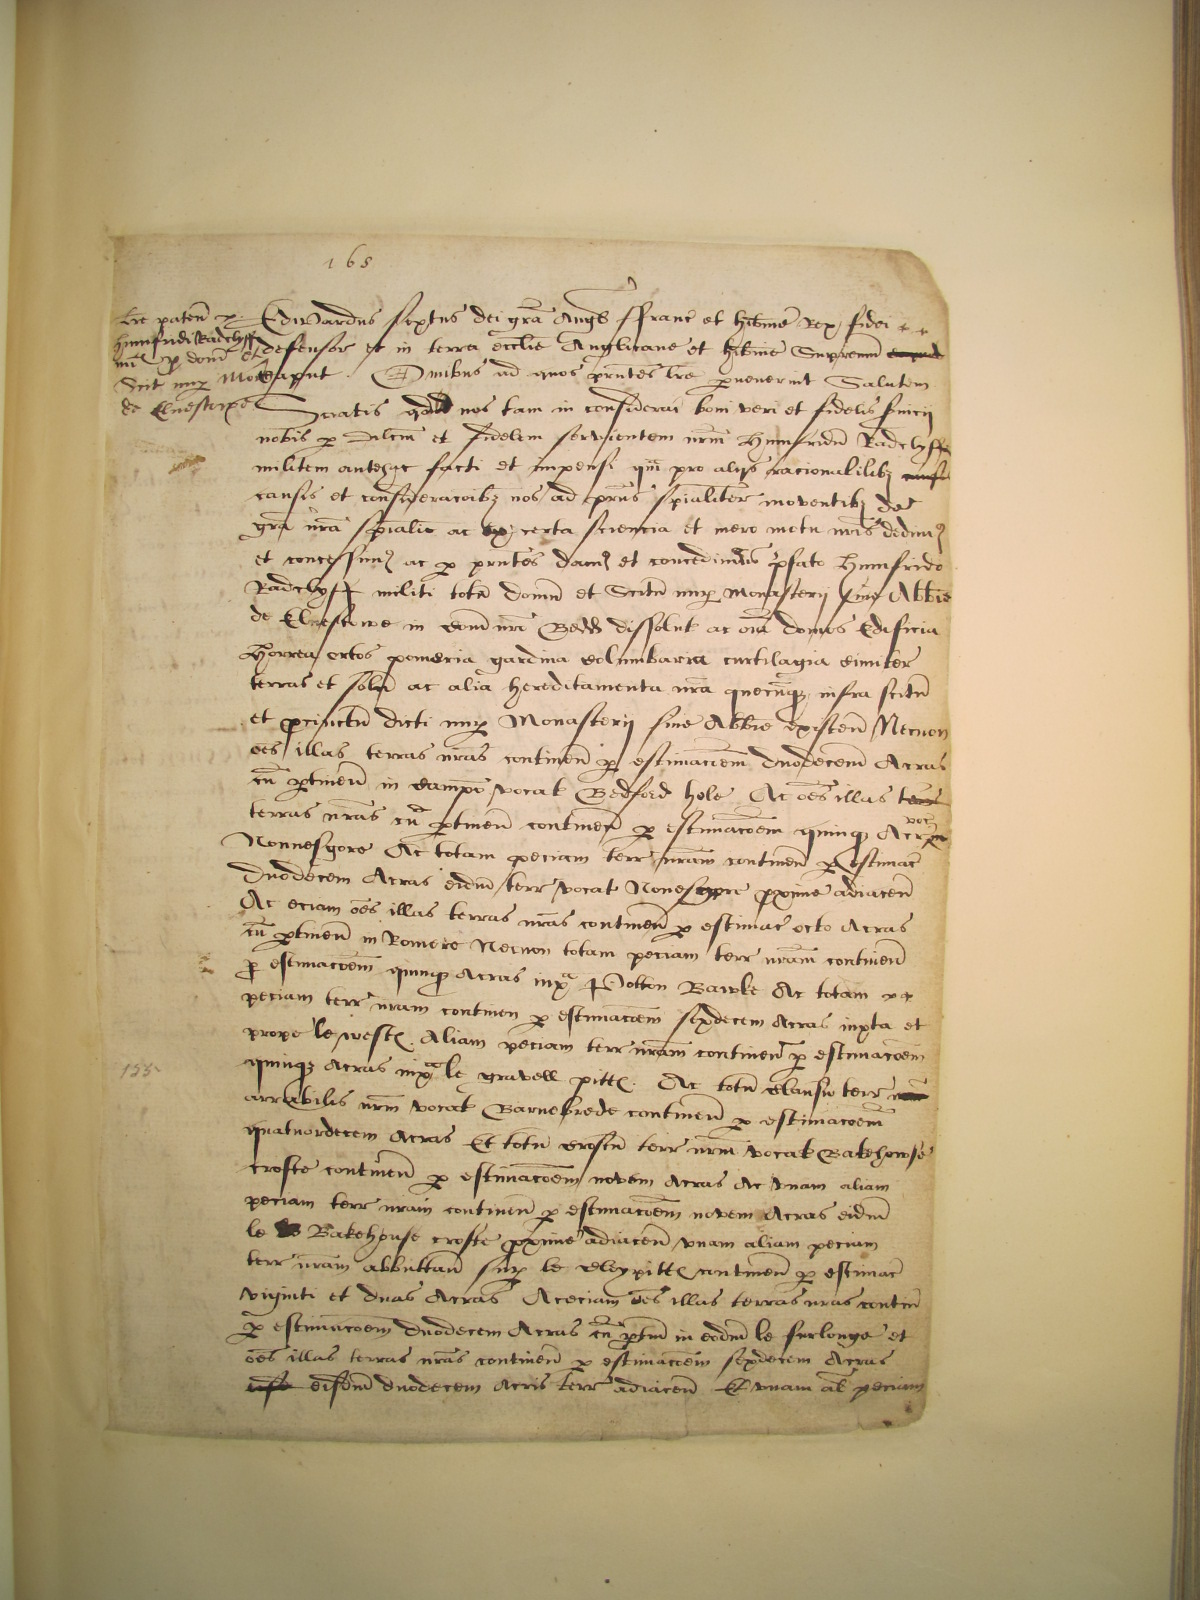 168
lre paten p
Humfridi Radclyff
mil p dom et
Scit nup Mon
de Elnestowe
Edwardus sextus dei gra Angl ffranc et hibnie Rex fidei
defensor et in terra ecclie Anglicane et hibnie Supremum
caput Omibus ad quos pntes lre pervenerint Salutem
Sciatis qd nos tam in considerac boni veri et fidelis svicij
nobis p dilcm et fidelem servientem nrm Humfridu Radclyff
militem antehac facti et impensi qm pro alijs racionabilibz
causis et consideracoibz nos ad pns spialiter moventibz de
gra nra spiali ac ex certa sciencia et mero motu nris dedimz
et concessimz ac p pntes damz et concedimus pfato Humfrido
Radclyff militi totu domu et Scitu nup Monasterij sive Abbie
de Elnestowe in com nro Bedd dissolut ac oia domos Edificia
Horrea ortos pomeria gardina columbaria curtilagia cimiter
terras et solu ac alia hereditamenta nra quecuqz infra scitu
et pcinctu dicti nup Monasterij sive Abbie existen Necnon
oes illas terras nras continen p estimacoem duodecem Acras
cu ptinen in campo vocat Bedford hole Ac oes illas
terras nras cu ptinen continen p estimacoem quinqz Acr voc
Nonnesgore Ac totam peciam terr nram continen p estimac
duodecem Acras eidm terr vocat Nonesgore pxime adiacen
Ac eciam oes illas terras nras continen p estimac octo Acras
cu ptinen in Romere Necnon totam peciam terr nram continen
p estimacoem quinqz Acras iuxa Potton Bawlke Ac totam
peciam terr nram continen p estimacoem sexdecem Acras iuxta et
prope le west Aliam peciam terr nram continen p estimacoem
quinqz Acras iuxa le gravell pitt Ac totu clausu terr
155
arrabilis nrm vocat Barnebrede continen p estimacoem
quatuordecem Acras Et totu croftu terr nrm vocat Bakehowse
crofte continen p estimacoem novem Acras Ac vnam aliam
peciam terr nram continen p estimacoem novem Acras eidm
le Bakehouse crofte pxime adiacen vnam aliam peciam
terr nram abbuttan sup le cleypitt continen p estimac
viginti et duas Acras Aceciam oes illas terras nras contin
p estimacoem duodecem Acras cu ptin in eodm le furlonge et
oes illas terras nras continen p estimacoem sexdecem Acras
eisdm duodecem Acris terr adiacen Et vnam al peciam